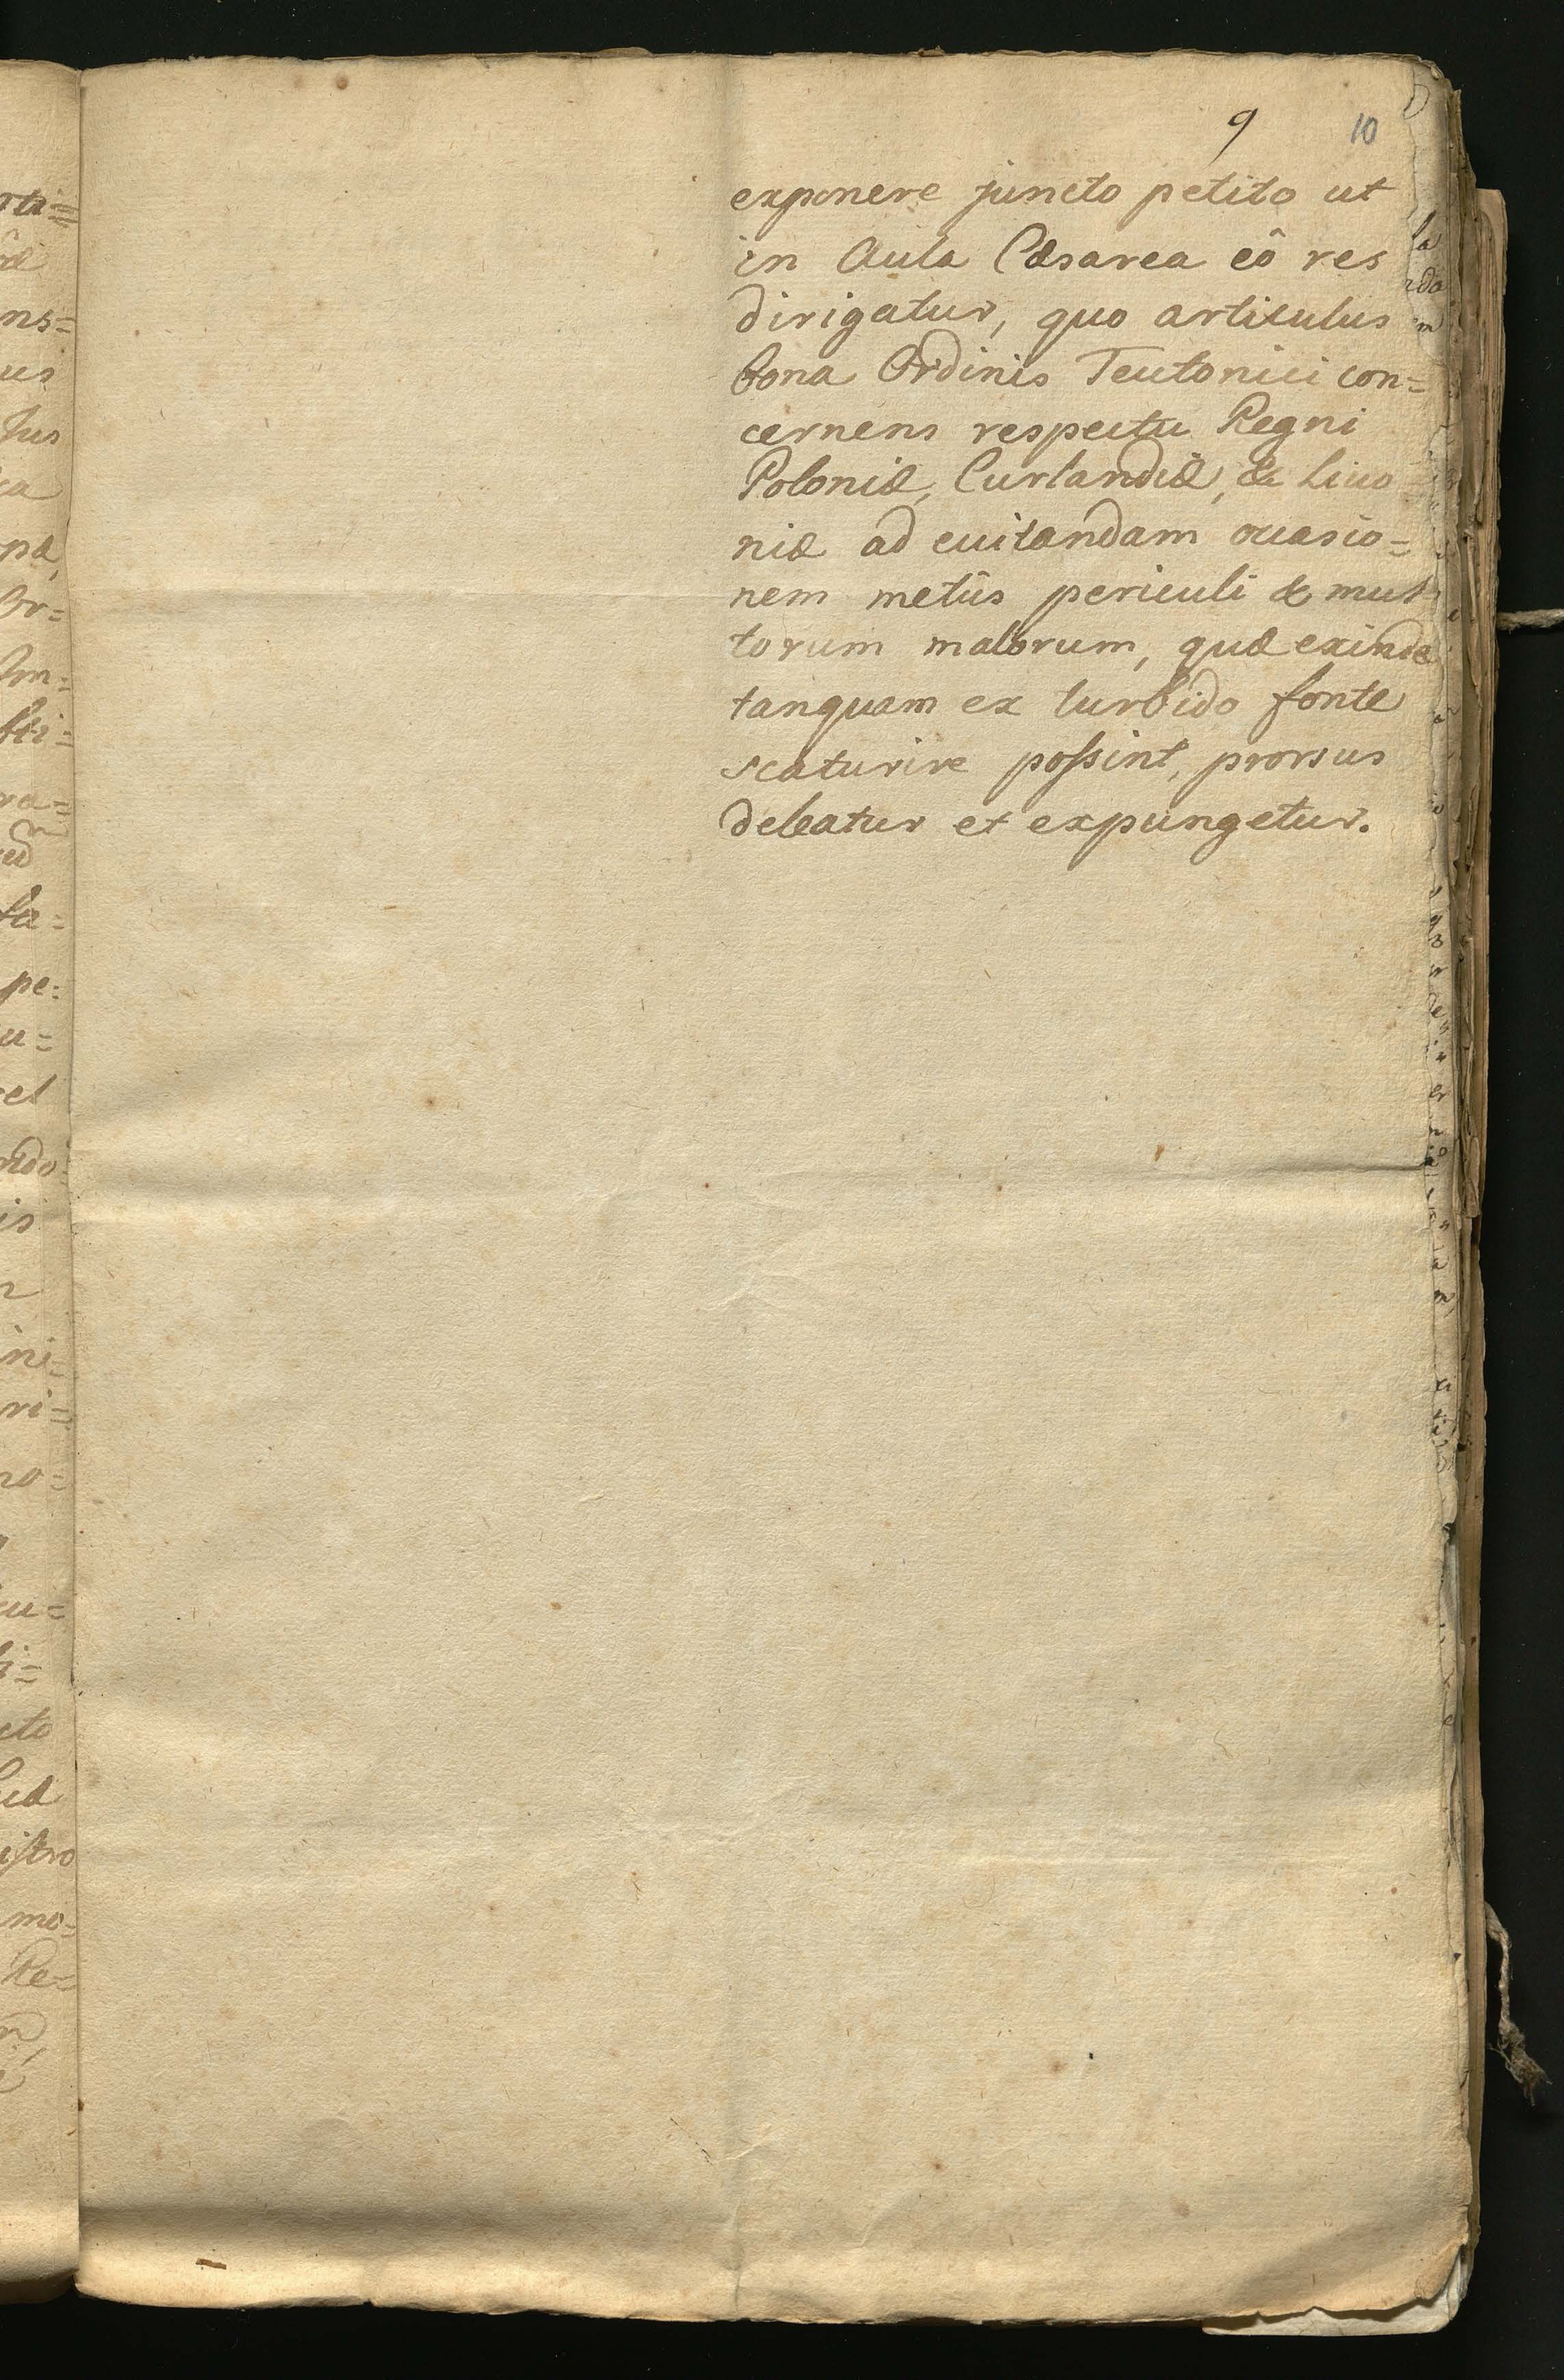 9 10
exponere juncto petito ut
in Aula Cæsarea eô res
dirigatur, quo articulus
bona Ordinis Teutonici con=
cernens respectu Regni
Poloniæ, Curlandiæ, & Liuo
niæ ad euitandam occasio=
nem metûs periculi & mul
torum malorum, quæ exinde
tanquam ex turbido fonte
scaturire poſsint, prorsus
deleatur et expungetur.